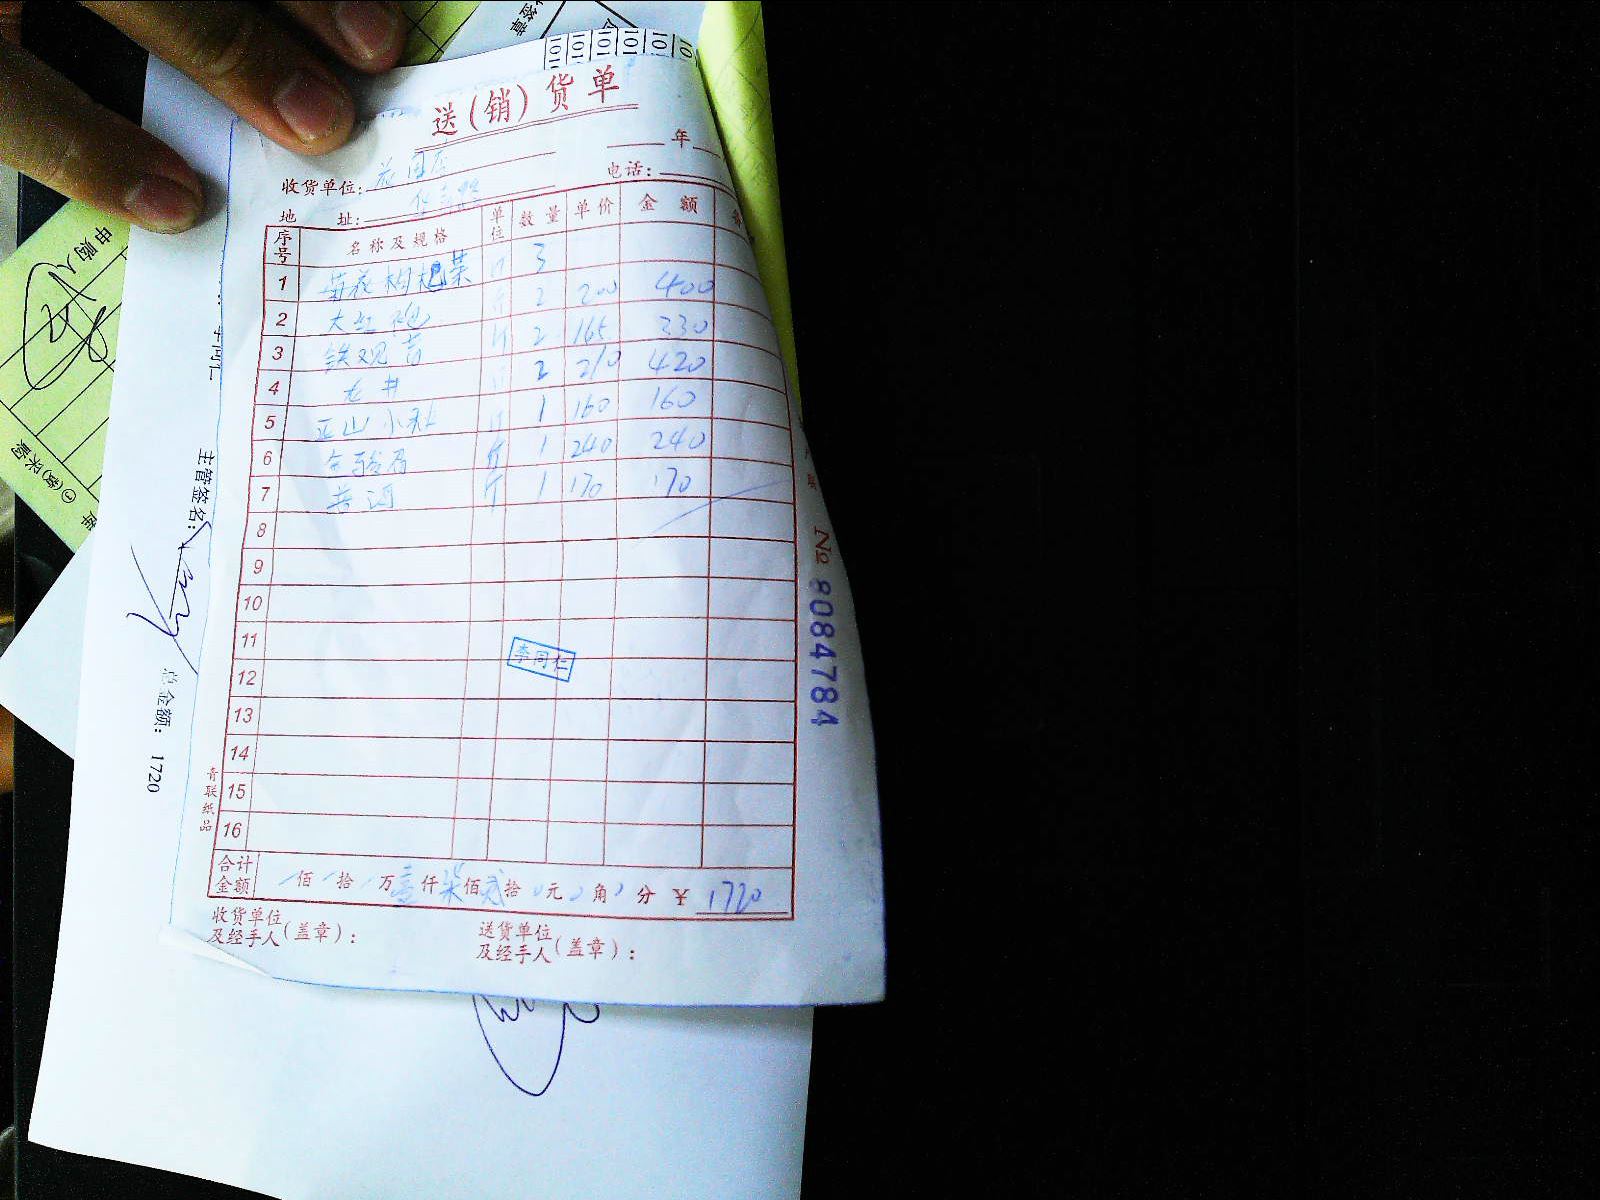 送(销)货单
年
收货单位: 花园店
电话:
地 址:
序号 名称及规格 单位 数量 单价 金 额
1 菊花枸杞茶 斤 3
2 大红袍 斤 2 200 400
3 铁观音 斤 2 165 330
4 龙井 斤 2 210 420
5 正山小种 斤 1 160 160
6 金骏眉 斤 1 240 240
7 普洱 斤 1 170 170
8
9
10
11
12
13
14
15
16
李同仁
合计金额 佰 拾 万壹仟柒佰贰拾0元0角0分 ¥1720
收货单位及经手人(盖章):
送货单位及经手人(盖章):
青联纸品
No 8084784
申购人
主管签名:
总金额: 1720